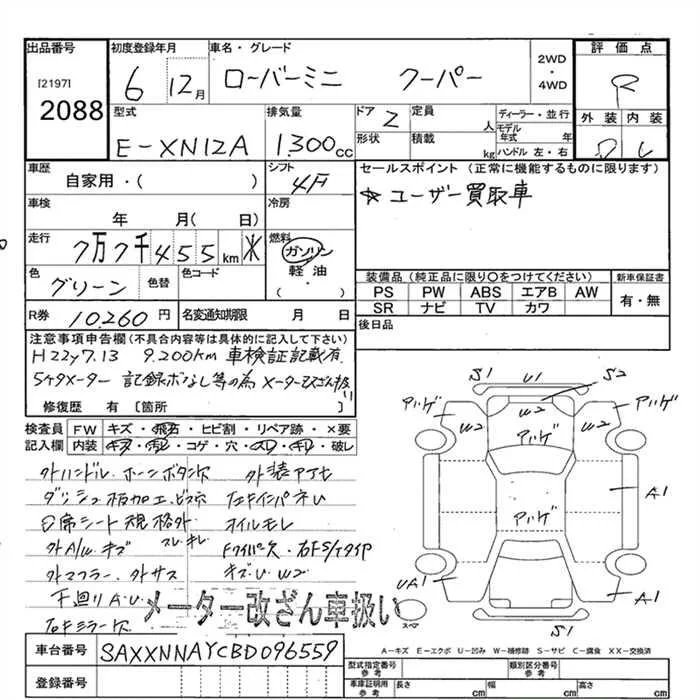 出品番号 初度登録年月 車名・グレード 評価点
[2197]
2088
6 12月 ローバーミニ クーパー 2WD・4WD R
型式 排気量 ドア 定員 ディーラー・並行 外装 内装
E-XN12A 1.300cc 2 人 モデル年式 年
形状 積載 kg ハンドル 左・右 D
車歴 シフト セールスポイント (正常に機能するものに限ります)
自家用・( ) 4F ☆ユーザー買取車
車検 冷房
年 月( 日)
走行 燃料
7万7千455km ※ ガソリン
軽油・( )
色 色替 色コード
グリーン
装備品 (純正品に限り○をつけてください) 新車保証書
PS PW ABS エアB AW 有・無
SR ナビ TV カワ
R券 10,260円 名変通知期限 月 日 後日品
注意事項申告欄(不具合内容等は具体的に記入して下さい)
H22y7.13 9.200km 車検証記載有
5ケタメーター 記録ボなし等の為 メーター改ざん扱い
修復歴 有 [箇所 ]
検査員記入欄 FW キズ・飛石・ヒビ割・リペア跡・×要
内装 キズ・汚レ・コゲ・穴・スレ・キレ・破レ
外ハンドル・ホーンボタン欠 外装アセ
ダッシュ板加工・ビス穴
席シート規格外 オイルモレ
スレ・キレ
外A/W キズ Fワイパー欠・右FS/タイヤ
外マフラー・外サス キズU W2
下廻りA・U
右ミラー欠
メーター改ざん車扱い
S1 U1 S2
アハゲ W2 W2 アハゲ
アハゲ
アハゲ
A1
UA1 A1
スペア S1
A-キズ E-エクボ U-凹み W-補修跡 S-サビ C-腐食 XX-交換済
車台番号 SAXXNNAYCBD096559
登録番号
型式指定番号 参考 類別区分番号 参考
車庫証明用 参考 長さ cm 幅 cm 高さ cm